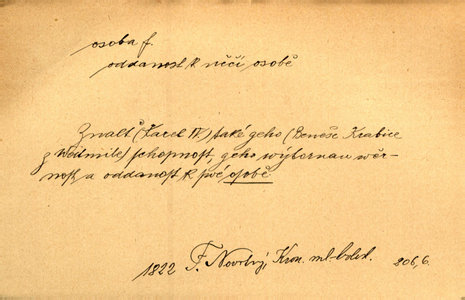 osoba f.
oddanost k něčí osobě
Znalť (Karel IV.) také geho (Beneše Krabice
z Weitmile) schopnost, geho wýbornau wěr-
nost a oddanost k swé osobě
1822 F. Novotný, Kron. ml-bolesl. 206,6.